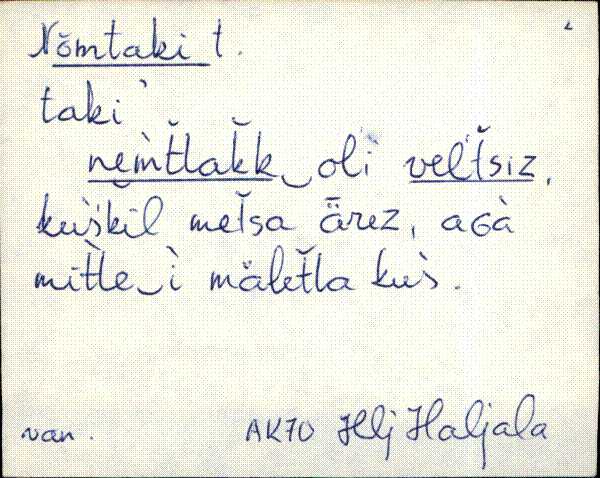 Nõmtaki t.
taki
nem̀t̆lak̆k‿oli vel't̆siz,
kùs̆kil met̆sa ä̅rez, aGà
mit̆tè‿ì mälet̆la kùs.
van. AK70 Hlj Haljala